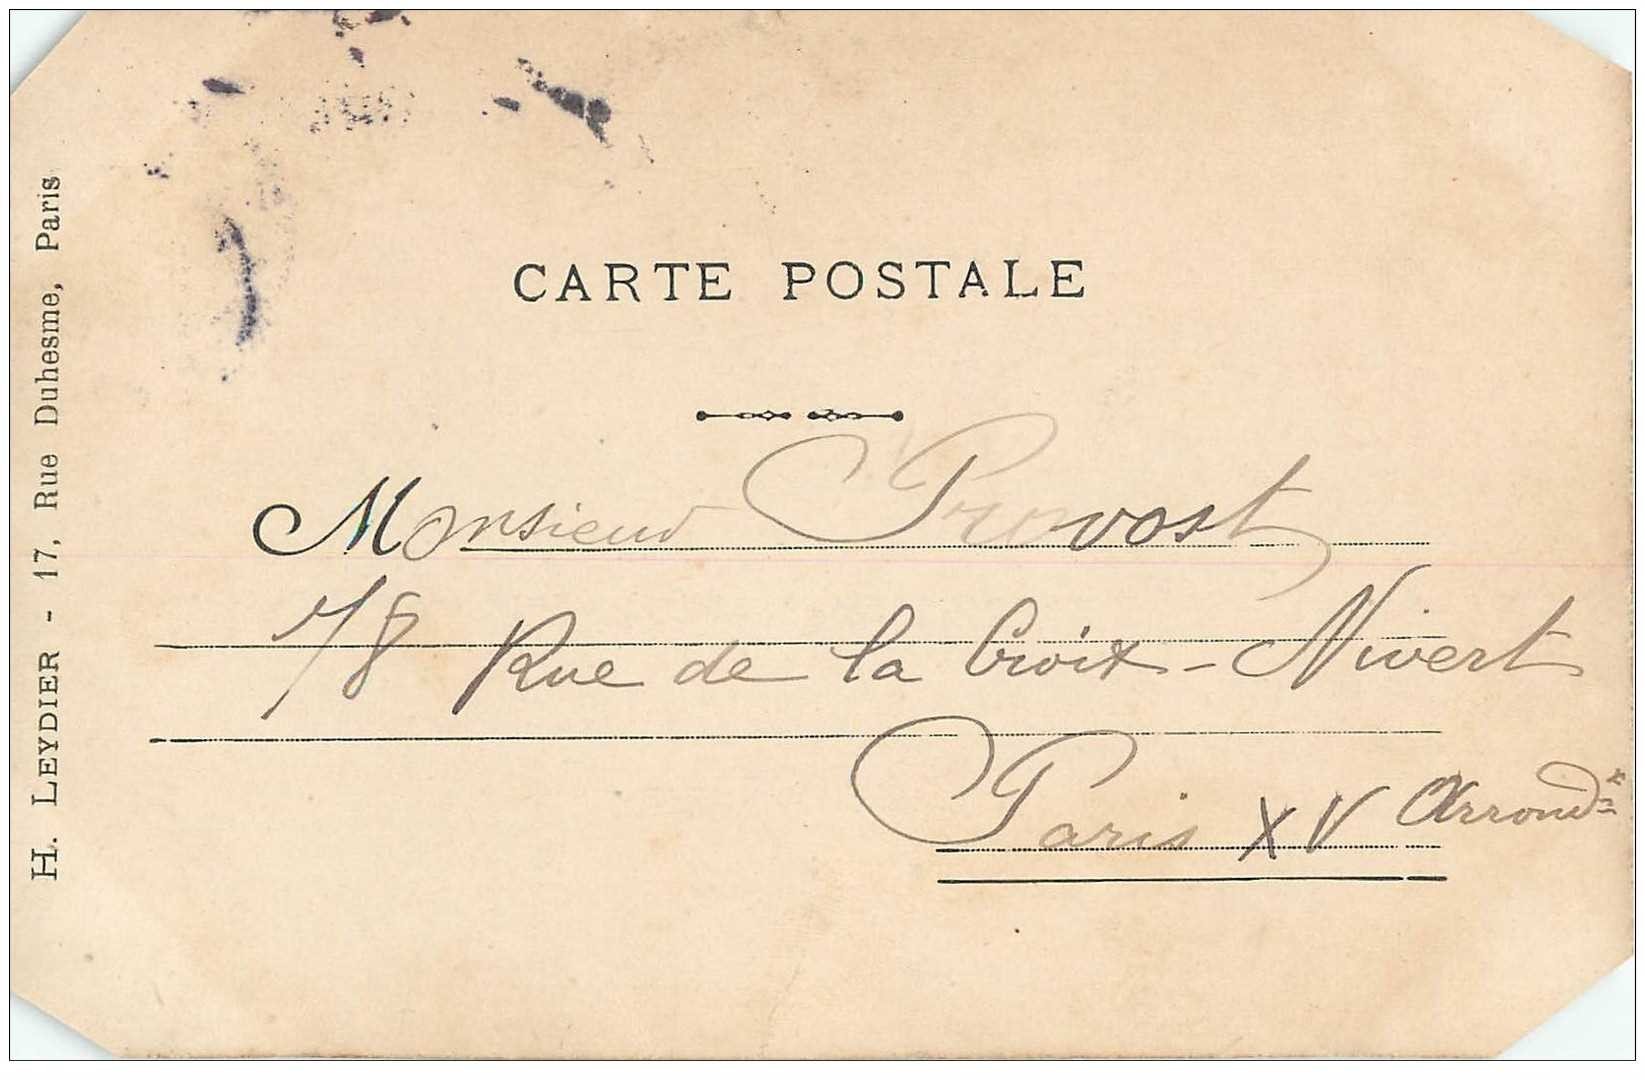 CARTE POSTALE
Monsieur Provost
78 Rue de la Croix-Nivert
Paris XV Arrondt
H. LEYDIER - 17, Rue Duhesme, Paris